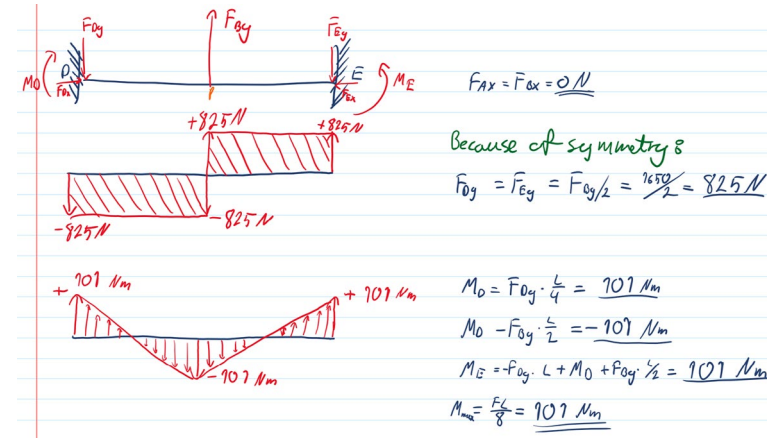 F_Dy F_By F_Ey
M_D D E M_E
F_Dx F_Ex
+825N +825N
-825N -825N
+ 101 Nm + 101 Nm
-101 Nm
F_AX = F_BX = 0 N
Because of symmetry:
F_Dy = F_Ey = F_By/2 = 1650/2 = 825N
M_D = F_Dy · L/4 = 101 Nm
M_D - F_By · L/2 = -101 Nm
M_E = -F_Dy · L + M_D + F_By · L/2 = 101 Nm
M_max = FL/8 = 101 Nm